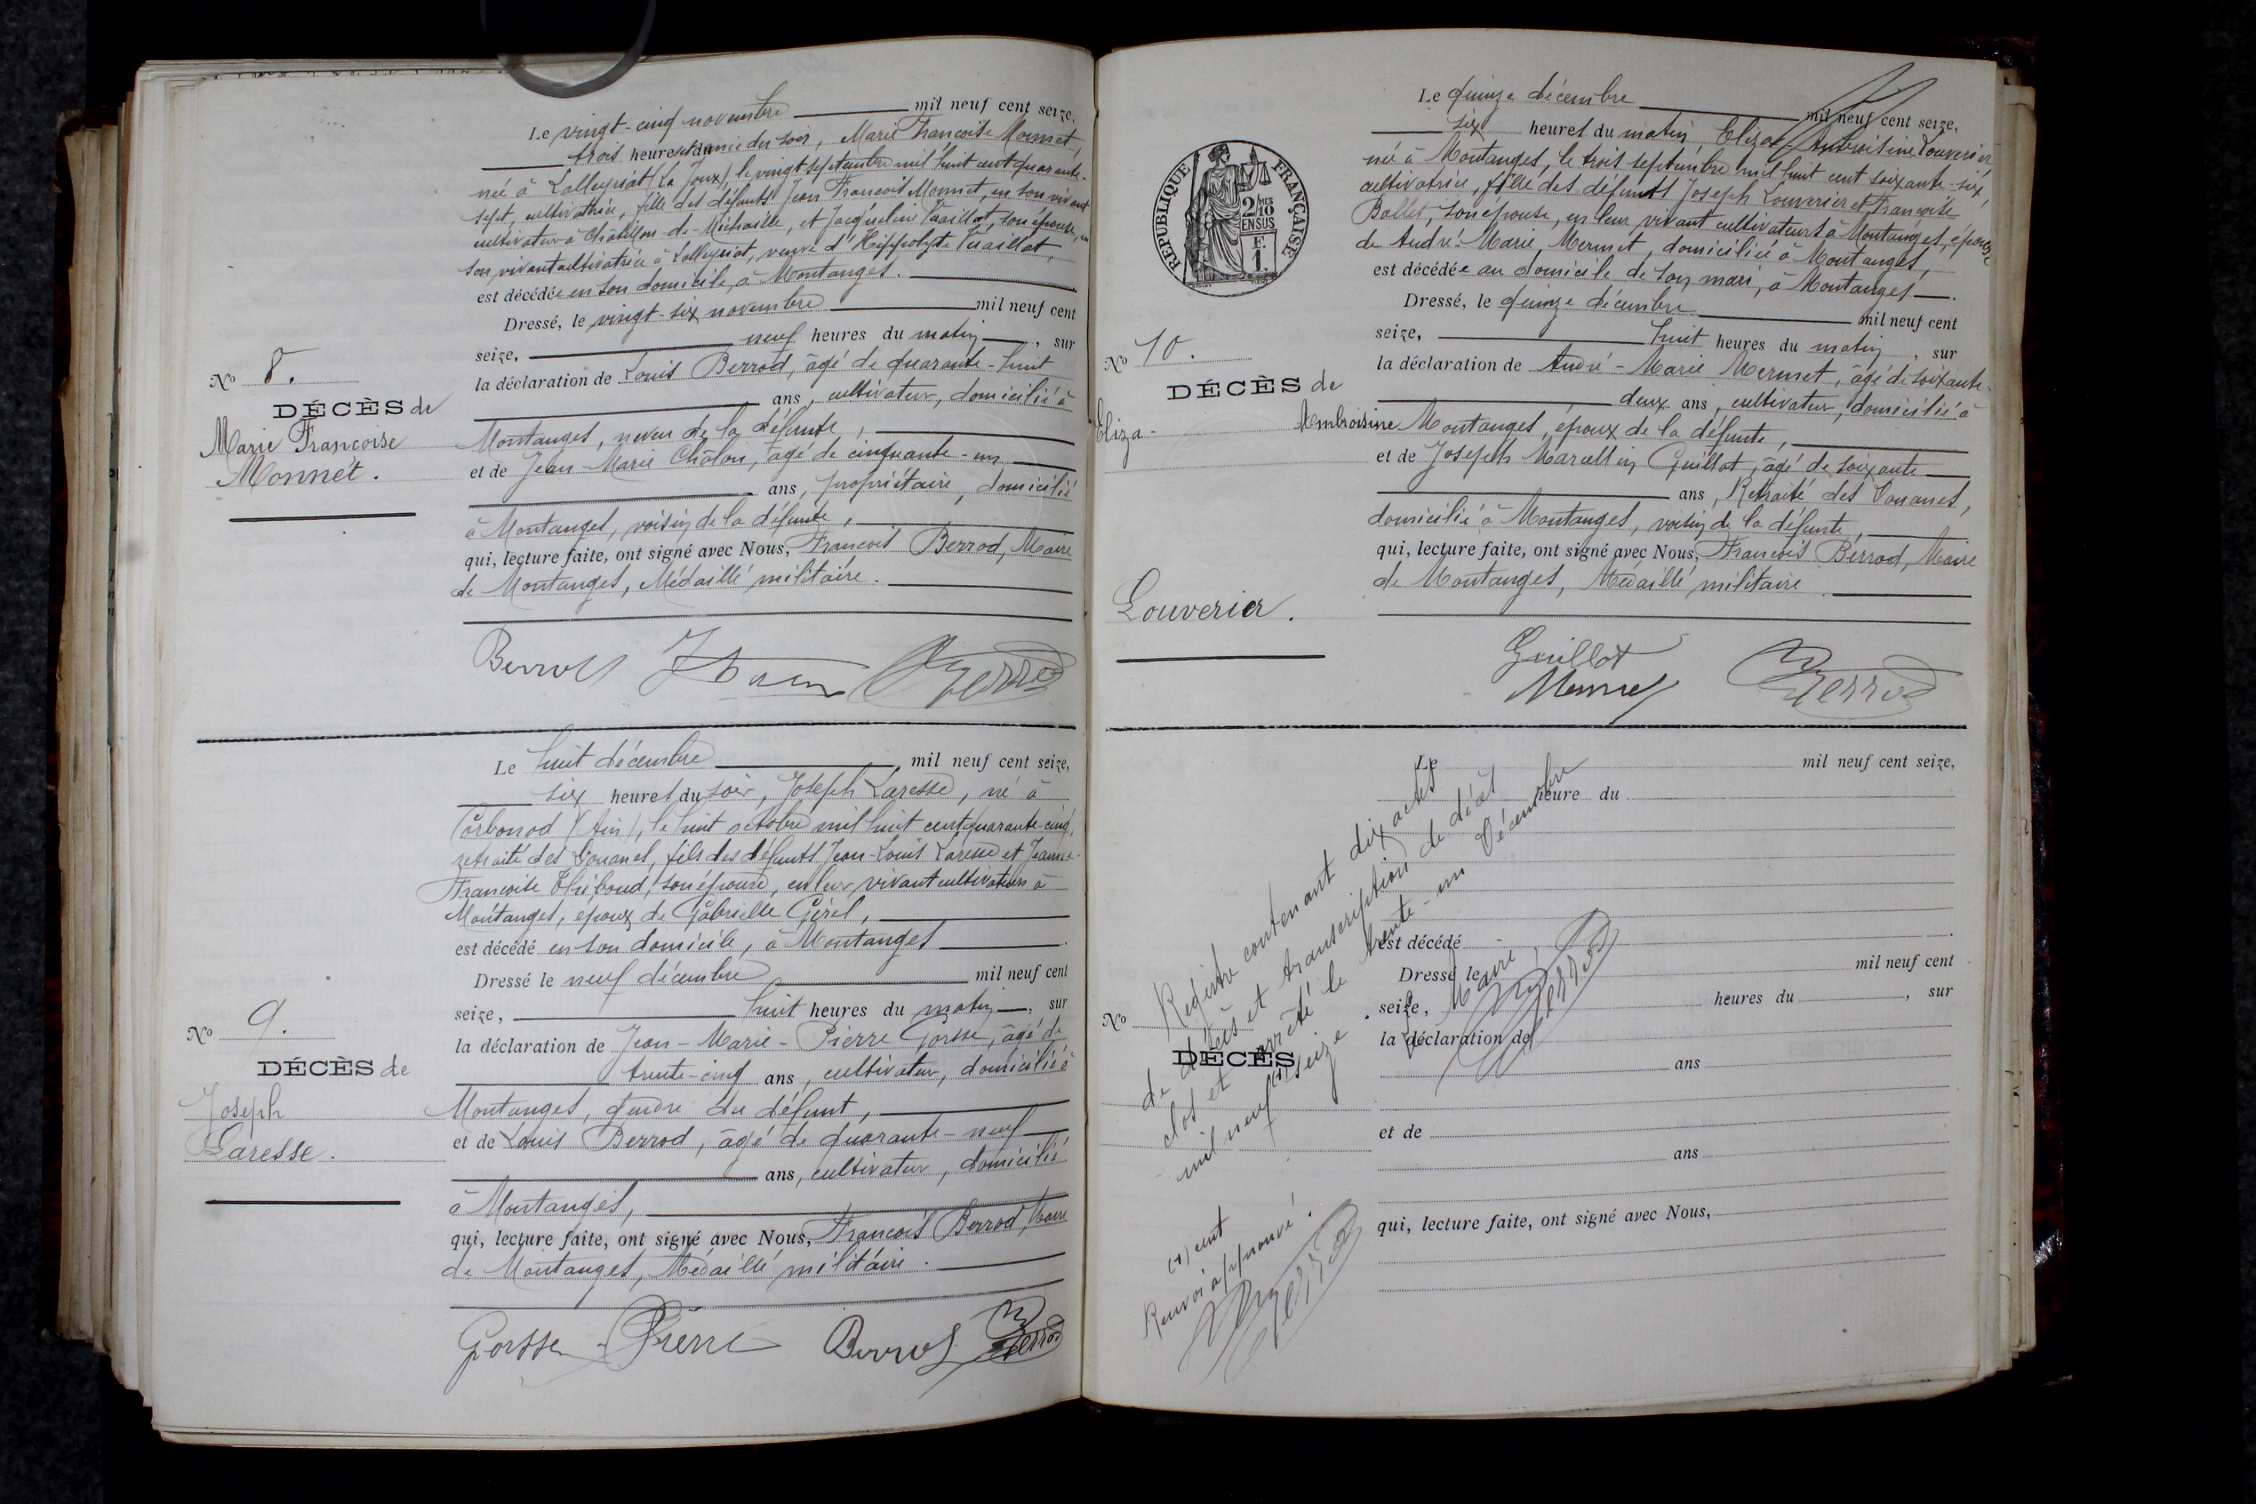 Le vingt-cinq novembre mil neuf cent seize,
trois heures du soir, Marie Françoise Monnet,
née à Lalleyriat (La Joux), le vingt septembre mil huit cent quarante-
sept, cultivatrice, fille des défunts Jean François Monnet, en son vivant
cultivateur à Châtillon-de-Michaille, et Jacqueline Vuaillat, son épouse, en
son vivant cultivatrice à Lalleyriat, veuve d'Hippolyte Vuaillat,
est décédée en son domicile, à Montanges.
Dressé, le vingt-six novembre mil neuf cent
seize, neuf heures du matin, sur
la déclaration de Louis Berrod, âgé de quarante-huit
ans, cultivateur, domicilié à
Montanges, neveu de la défunte,
et de Jean-Marie Châlon, âgé de cinquante-un
ans, propriétaire, domicilié
à Montanges, voisin de la défunte,
qui, lecture faite, ont signé avec Nous, François Berrod, Maire
de Montanges, Médaillé militaire.
Berrod Berrod
No 8.
DÉCÈS de
Marie Françoise
Monnet.
Le huit décembre mil neuf cent seize,
six heures du soir, Joseph Laresse, né à
Corbonod (Ain), le huit octobre mil huit cent quarante-cinq,
retraité des Douanes, fils des défunts Jean-Louis Laresse et Jeanne-
Françoise Thiboud, son épouse, en leur vivant cultivateurs à
Montanges, époux de Gabrielle Gérel,
est décédé en son domicile, à Montanges.
Dressé le neuf décembre mil neuf cent
seize, huit heures du matin, sur
la déclaration de Jean-Marie-Pierre Gorsse, âgé de
trente-cinq ans, cultivateur, domicilié à
Montanges, gendre du défunt,
et de Louis Berrod, âgé de quarante-neuf
ans, cultivateur, domicilié
à Montanges,
qui, lecture faite, ont signé avec Nous, François Berrod, Maire
de Montanges, Médaillé militaire.
Gorsse Pierre Berrod Berrod
No 9.
DÉCÈS de
Joseph
Laresse.
RÉPUBLIQUE FRANÇAISE
2/10 MES
EN SUS
F.
1.
Le quinze décembre mil neuf cent seize,
six heures du matin, Eliza-Ambroisine Louverier
née à Montanges, le trois septembre mil huit cent soixante-six,
cultivatrice, fille des défunts Joseph Louverier et Françoise
Ballet, son épouse, en leur vivant cultivateurs à Montanges, épouse
de André-Marie Mermet, domiciliée à Montanges,
est décédée au domicile de son mari, à Montanges.
Dressé, le quinze décembre mil neuf cent
seize, huit heures du matin, sur
la déclaration de André-Marie Mermet, âgé de soixante-
deux ans, cultivateur, domicilié à
Montanges, époux de la défunte,
et de Joseph Marcellin Guillot, âgé de soixante
ans, Retraité des Douanes,
domicilié à Montanges, voisin de la défunte,
qui, lecture faite, ont signé avec Nous, François Berrod, Maire
de Montanges, Médaillé militaire.
Guillot
Mermet Berrod
No 10.
DÉCÈS de
Eliza- Ambroisine
Louverier.
Le mil neuf cent seize,
heure du
est décédé
Dressé le mil neuf cent
seize, heures du , sur
la déclaration de
ans
et de
ans
qui, lecture faite, ont signé avec Nous,
No
DÉCÈS
Registre contenant dix actes
de décès et transcription de décès
clos et arrêté le trente-un Décembre
mil neuf (1) seize.
Le Maire,
Berrod
(1) cent
Renvoi approuvé.
Berrod